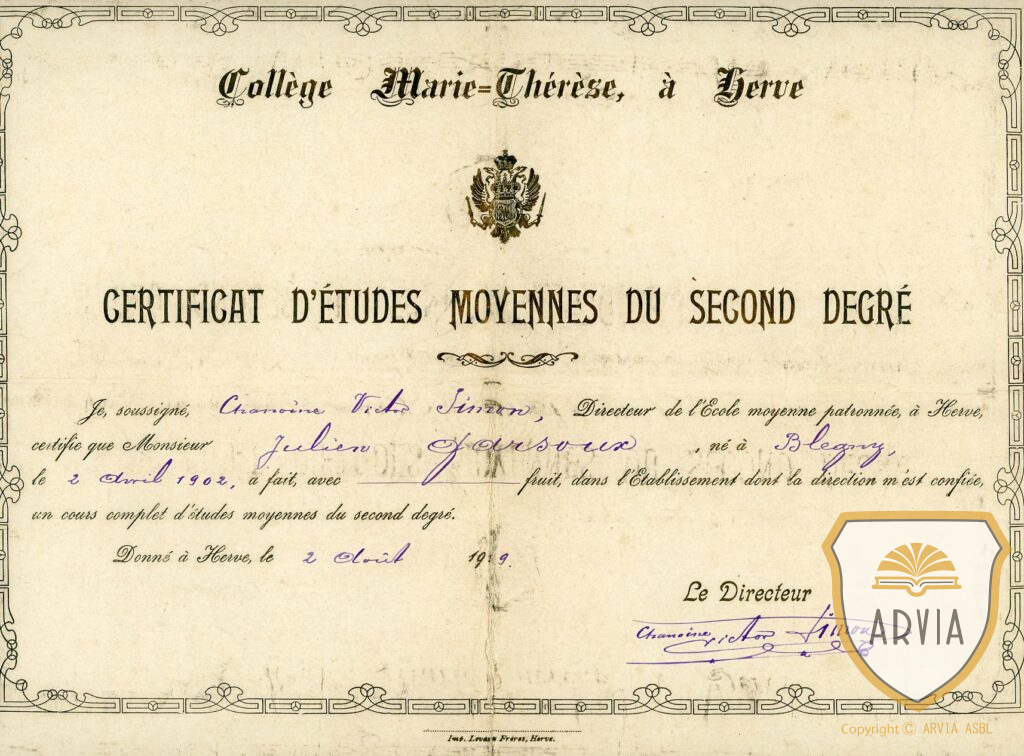 Collège Marie=Thérèse, à Herve
CERTIFICAT D'ÉTUDES MOYENNES DU SECOND DEGRÉ
Je, soussigné, Chanoine Victor Simon, Directeur de l'Ecole moyenne patronnée, à Herve,
certifie que Monsieur Julien Darsoux, né à Blegny,
le 2 Avril 1902, a fait, avec fruit, dans l'Etablissement dont la direction m'est confiée,
un cours complet d'études moyennes du second degré.
Donné à Herve, le 2 Août 1919.
Le Directeur
Chanoine Victor Simon
ARVIA
Imp. Frères, Herve.
Copyright © ARVIA ASBL